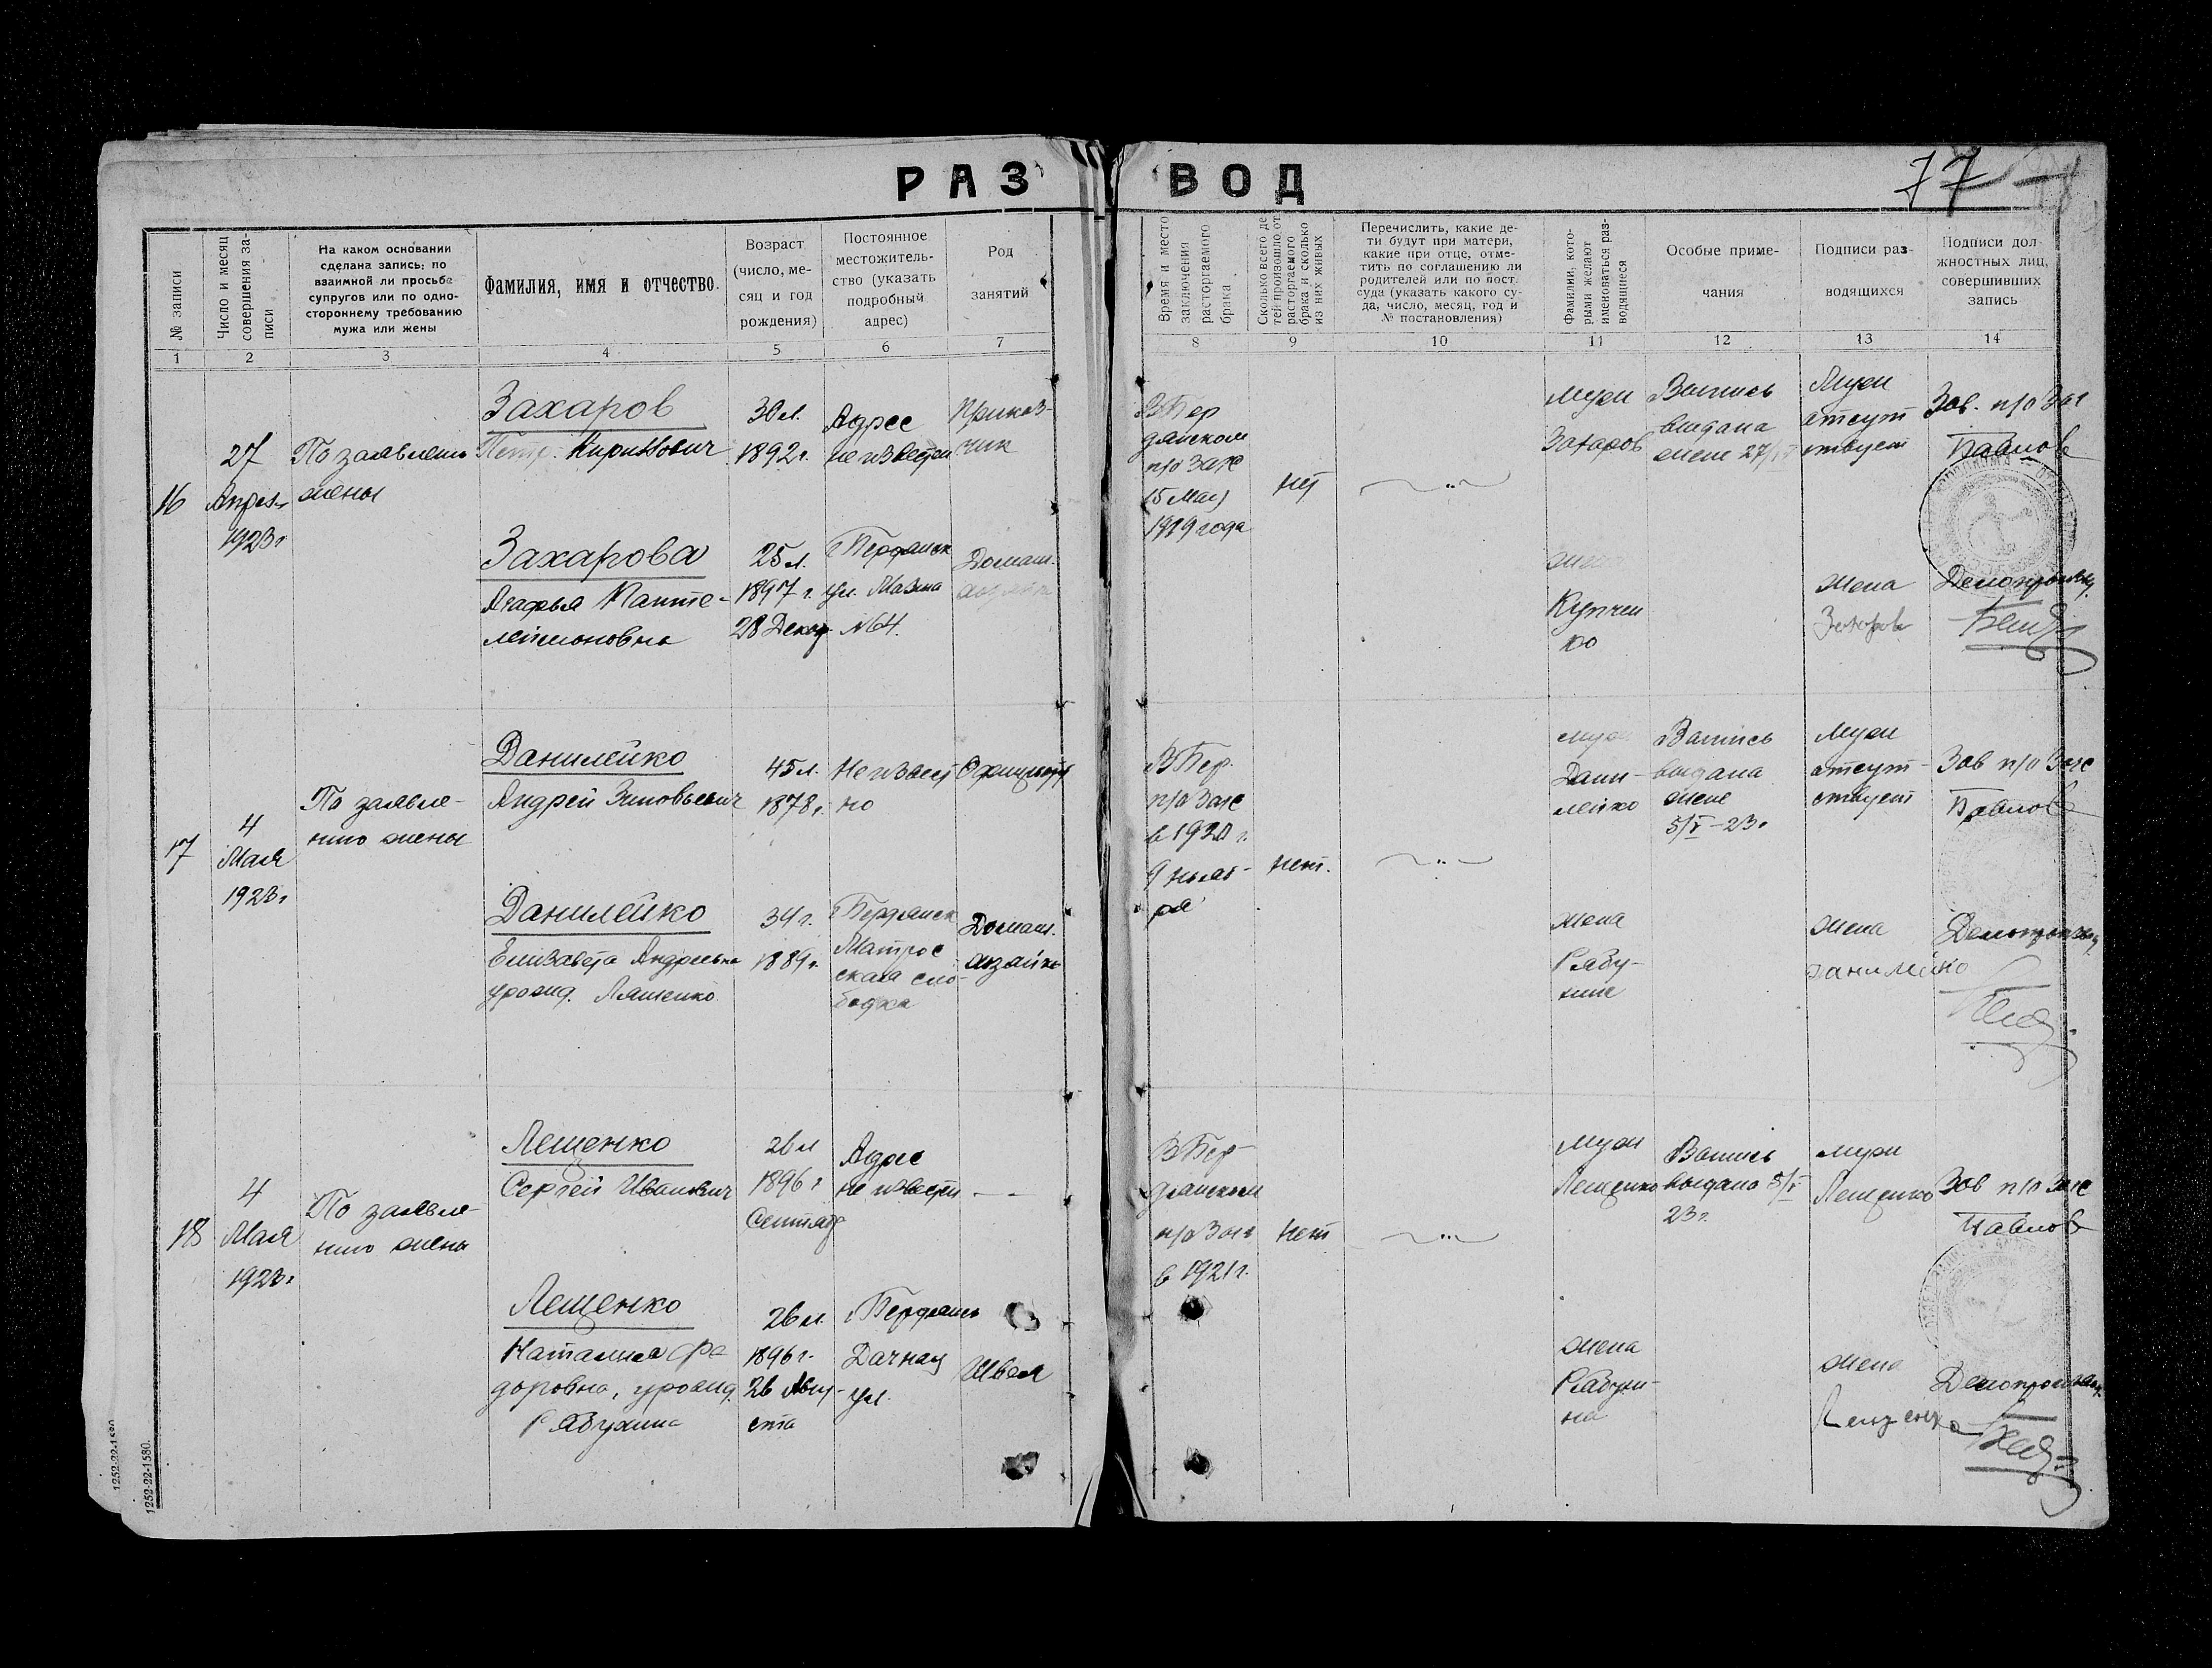 РАЗ ВОД
77
№ записи
Число и месяц
совершения за-
писи
На каком основании
сделана запись: по
взаимной ли просьбе
супругов или по одно-
стороннему требованию
мужа или жены
Фамилия, имя и отчество.
Возраст
(число, ме-
сяц и год
рождения)
Постоянное
местожитель-
ство (указать
подробный
адрес)
Род
занятий
Время и место
заключения
расторгаемого
брака
Сколько всего де-
тей произошло от
расторгаемого
брака и сколько
из них живых
Перечислить, какие де-
ти будут при матери,
какие при отце, отме-
тить по соглашению ли
родителей или по пост.
суда (указать какого су-
да, число, месяц, год и
№ постановления)
Фамилии, кото-
рыми желают
именоваться раз-
водящиеся
Особые приме-
чания
Подписи раз-
водящихся
Подписи дол-
жностных лиц,
совершивших
запись
1 2 3 4 5 6 7 8 9 10 11 12 13 14
16
27
1923 г
По заявлению
жены
Захаров
Петр Кириллович
30 л.
1892 г.
Адрес
неизвестен
Приказ-
чик
В Бер
дянском
п/о Загс
15 Мая
1919 года
нет
Муж
Захаров
Выпись
выдана
жене 27/
Муж
отсут
ствует
Зав. п/о Загс
Павлов
Захарова
Агафья Панте-
леймоновна
25 л.
1897 г.
28 Декаб.
г Бердянск
ул. Мазина
№ 64.
Домаш.
Купчен
ко
жена
Делопроизвод.
17
4
Мая
1923 г
По заявле-
нию жены
Данилейко
Андрей Зиновьевич
45 л.
1878 г.
Неизвест
но
В Бер.
п/о Загс
в 1920 г.
9 нояб-
ря
нет.
муж
Дани-
лейко
Выпись
выдана
жене
5/V-23 г
Муж
отсут-
ствует
Зав п/о Загс
Павлов
Данилейко
Елизавета Андреевна
урожд. Ляшенко
34 г.
1889 г.
г Бердянск
Матрос
ская сло-
бодка
Домаш.
хозяйка
жена
жена
данилейко
Делопроизвод.
18
4
Мая
1923 г
По заявле-
нию жены
Лещенко
Сергей Иванович
26 л
1896 г
Сентяб
Адрес
не известен
— —
В Бер-
дянском
п/о Загс
в 1921 г.
нет
Муж
Лещенко
Выпись
выдана 5/V
23 г.
муж
Лещенко
Зав п/о Загс
Павлов
Лещенко
Наталия Фе
доровна, урожд.
Рябухина
26 л.
1896 г.
26 Авгу-
ста
г Бердянск
Дачная
ул.
Швея
жена
Рябухи-
на
жена
Лещенко
Делопроизвод.
1252-22-1580.
1252-22-1580.